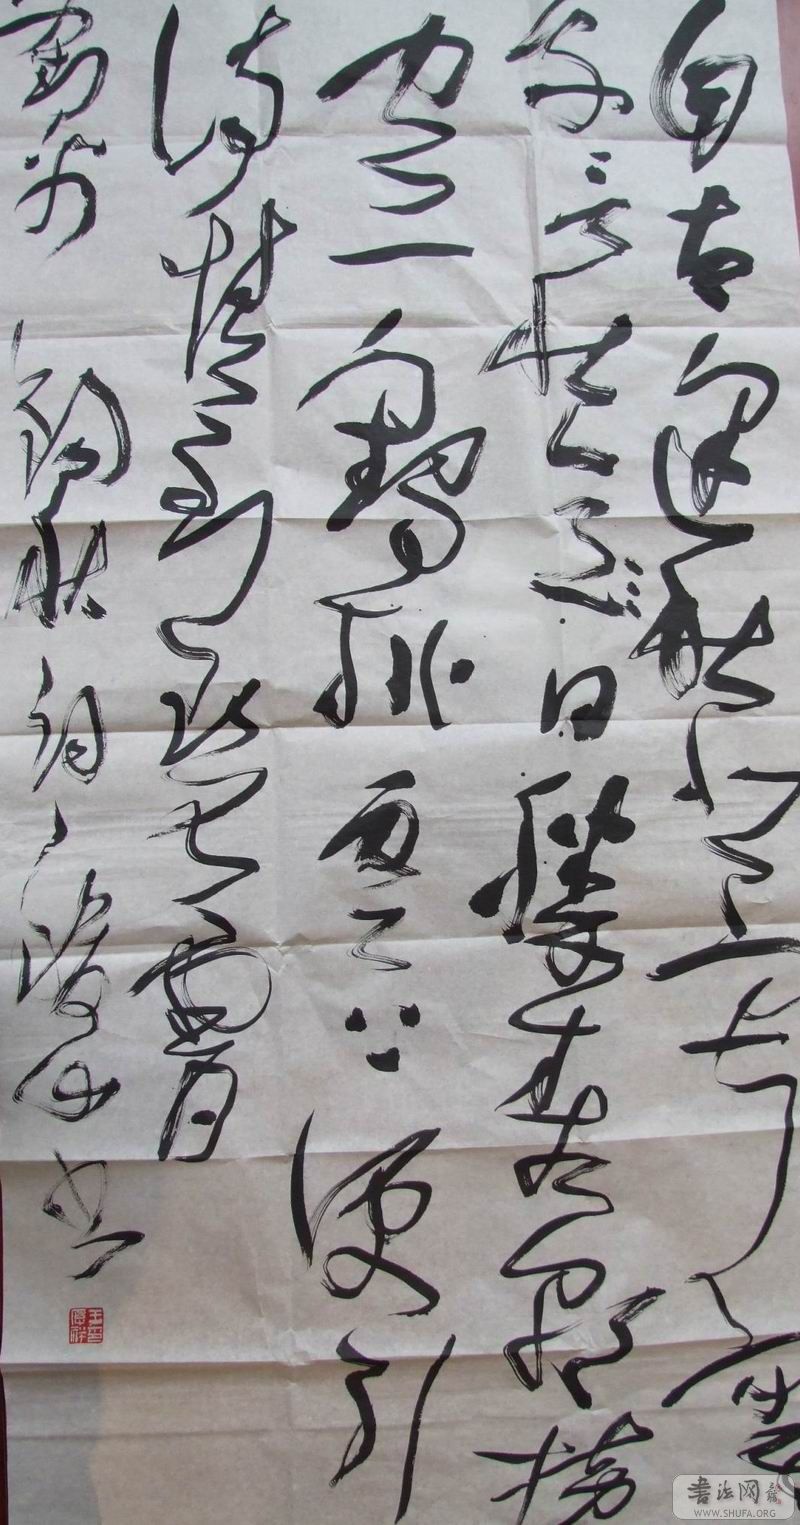 自古逢秋悲寂寥
我言秋日勝春朝晴
空一鶴排雲上便引
詩情到碧霄
劉禹錫秋詞
书
書法网
WWW.SHUFA.ORG